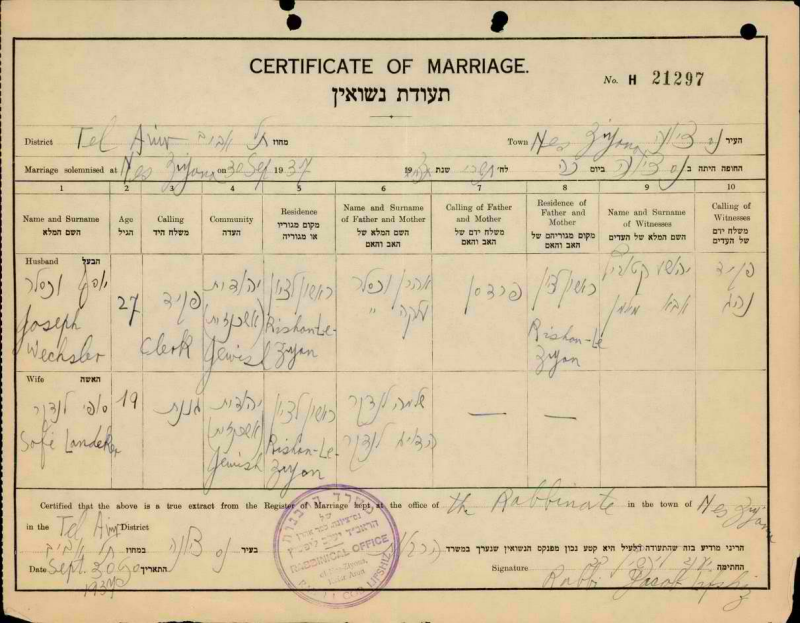 CERTIFICATE OF MARRIAGE.
No. H 21297
תעודת נשואין
District Tel Aviv תל אביב מחוז Town Nes Ziyona נס ציונה העיר
Marriage solemnised at Nes Ziyona on 30 Sep 1937 19 לח' תשרי שנת ביום כה החופה היתה ב נס ציונה
1 2 3 4 5 6 7 8 9 10
Name and Surname
השם המלא
Age
הגיל
Calling
משלח היד
Community
העדה
Residence
מקום מגוריו
או מגוריה
Name and Surname
of Father and Mother
השם המלא של
האב והאם
Calling of Father
and Mother
משלח ידם של
האב והאם
Residence of
Father and
Mother
מקום מגוריהם של
האב והאם
Name and Surname
of Witnesses
השם המלא של העדים
Calling of
Witnesses
משלח ידם
של העדים
Husband הבעל
יוסף וכסלר
Joseph
Wechsler
27
פקיד
Clerk
יהודית
(אשכנזית)
Jewish
ראשון לציון
Rishon-Le-
Ziyon
אהרן וכסלר
מלקה "
פרדסן
ראשון לציון
Rishon-Le
Ziyon
יהושע
אבא
פקיד
נהג
Wife האשה
סופי לנדקר
Sofie Landeker
19
גננת
יהודית
(אשכנזית)
Jewish
ראשון לציון
Rishon-Le-
Ziyon
שלמה לנדקר
לנדקר
—
—
Certified that the above is a true extract from the Register of Marriage kept at the office of the Rabbinate in the town of Nes Ziyona
in the Tel Aviv District
הריני מודיע בזה שהתעודה דלעיל היא קטע נכון מפנקס הנשואין שנערך במשרד הרבנות
בעיר נס ציונה במחוז תל אביב
Date Sept. 30 התאריך
1937
Signature החתימה
Rabbi Jacob Lifshiz
משרד הרבנות
RABBINICAL OFFICE